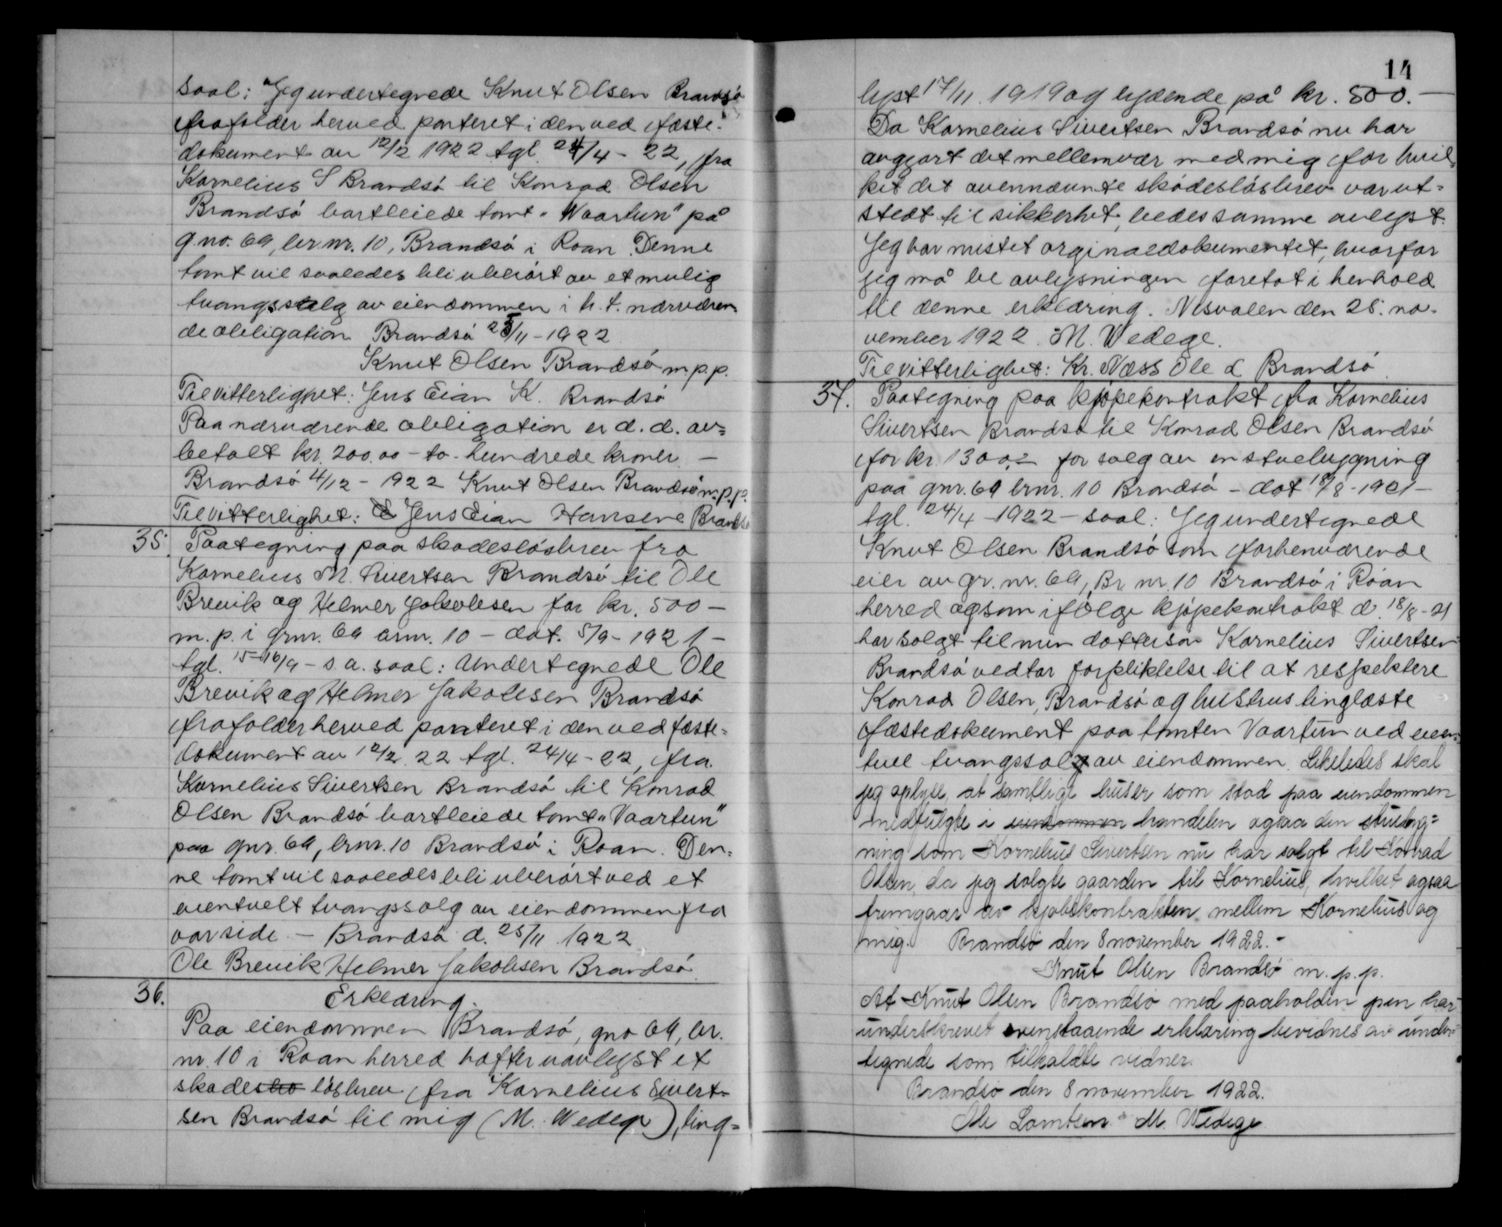 saal: "Jeg undertegnede Knut Olsen Brandsø
frafalder herved panteret i den ved fæste-
dokument av 12/2 1922 tgl. 24/4 - 22, fra
Kornelius S Brandsø til Konrad Olsen
Brandsø bortleiede tomt "Waartun" på
gno. 69, br.nr. 10, Brandsø i Roan. Denne
tomt vil saaledes bli uberørt av et mulig
tvangssalg av eiendommen i h.t. nærværen-
de obligation Brandsø 25/11 - 1922
Knut Olsen Brandsø m.p.p.
Til vitterlighet: Jens Eian K. Brandsø
Paa nærværende obligation er d.d. av=
betalt kr. 200.00 - to - hundrede kroner -
Brandsø 4/12 - 1922 Knut Olsen Brandsø m.p.p.
Til vitterlighet: Jens Eian Hansine Brandsø
35. Paategning paa skadesløsbrev fra
Kornelius M. Sivertsen Brandsø til Ole
Brevik og Helmer Jakobsen for kr. 500 -
m. p. i gnr. 69 brnr. 10 - dat. 5/9 - 1921 -
tgl. 15-16/9 - s.a. saal: Undertegnede Ole
Brevik og Helmer Jakobsen Brandsø
frafolder herved panteret i den ved fæste=
dokument av 12/2 22 tgl. 24/4 - 22, fra
Kornelius Sivertsen Brandsø til Konrad
Olsen Brandsø bortleiede tomt "Vaartun"
paa gnr. 69, brnr. 10 Brandsø i Roan. Den=
ne tomt vil saaledes bli uberørt ved et
eventuelt tvangssalg av eiendommen fra
vor side. - Brandsø d. 25/11 1922
Ole Brevik Helmer Jakobsen Brandsø
36. Erklæring.
Paa eiendommen Brandsø, gno 69, br.
nr. 10 i Roan herred hefter uavlyst et
skadesløsbrev fra Kornelius Sivert=
sen Brandsø til mig (M. Wedege), ting=
14
lyst 17/11 1919 og lydende på kr. 500. -
Da Kornelius Sivertsen Brandsø nu har
avgjort det mellemvær med mig for hvil=
ket det ovennævnte skadesløsbrev var ut=
stedt til sikkerhet, bedes samme avlyst.
Jeg har mistet orginaldokumentet, hvorfor
jeg må be avlysningen foretat i henhold
til denne erklæring. Nesvalen den 25. no-
vember 1922. M. Wedege.
Til vitterlighet: Kr. Næss Ole L Brandsø
37. Paategning paa kjøpekontrakt fra Kornelius
Sivertsen Brandsø til Konrad Olsen Brandsø
for kr. 1300,- for salg av en stuebygning
paa gnr. 69 brnr. 10 Brandsø - dat 18/8 - 1921 -
tgl. 24/4 - 1922 - saal: Jeg undertegnede
Knut Olsen Brandsø som forhenværende
eier av gr. nr. 69, Br. nr. 10 Brandsø i Roan
herred og som ifølge kjøpekontrakt d 18/8 - 21
har solgt til min dattersøn Kornelius Sivertsen
Brandsø vedtar forpliktelse til at respektere
Konrad Olsen, Brandsø og hustrus tinglæste
fæstedokument paa tomten Vaartun ved even=
tuel tvangssalg av eiendommen. Likeledes skal
jeg oplyse at samtlige huser som stod paa eiendommen
medfulgte i handelen ogsaa den stuebyg=
ning som Kornelius Sivertsen nu har solgt til Konrad
Olsen, da jeg solgte gaarden til Kornelius, hvilket ogsaa
fremgaar av kjøbekontrakten mellem Kornelius og
mig. Brandsø den 8 november 1922. -
Knut Olsen Brandsø m.p.p.
At Knut Olsen Brandsø med paaholden pen har
underskrevet ovenstaaende erklæring bevidnes av under-
tegnede som tilkaldte vidner.
Brandsø den 8 november 1922.
M. Wedege